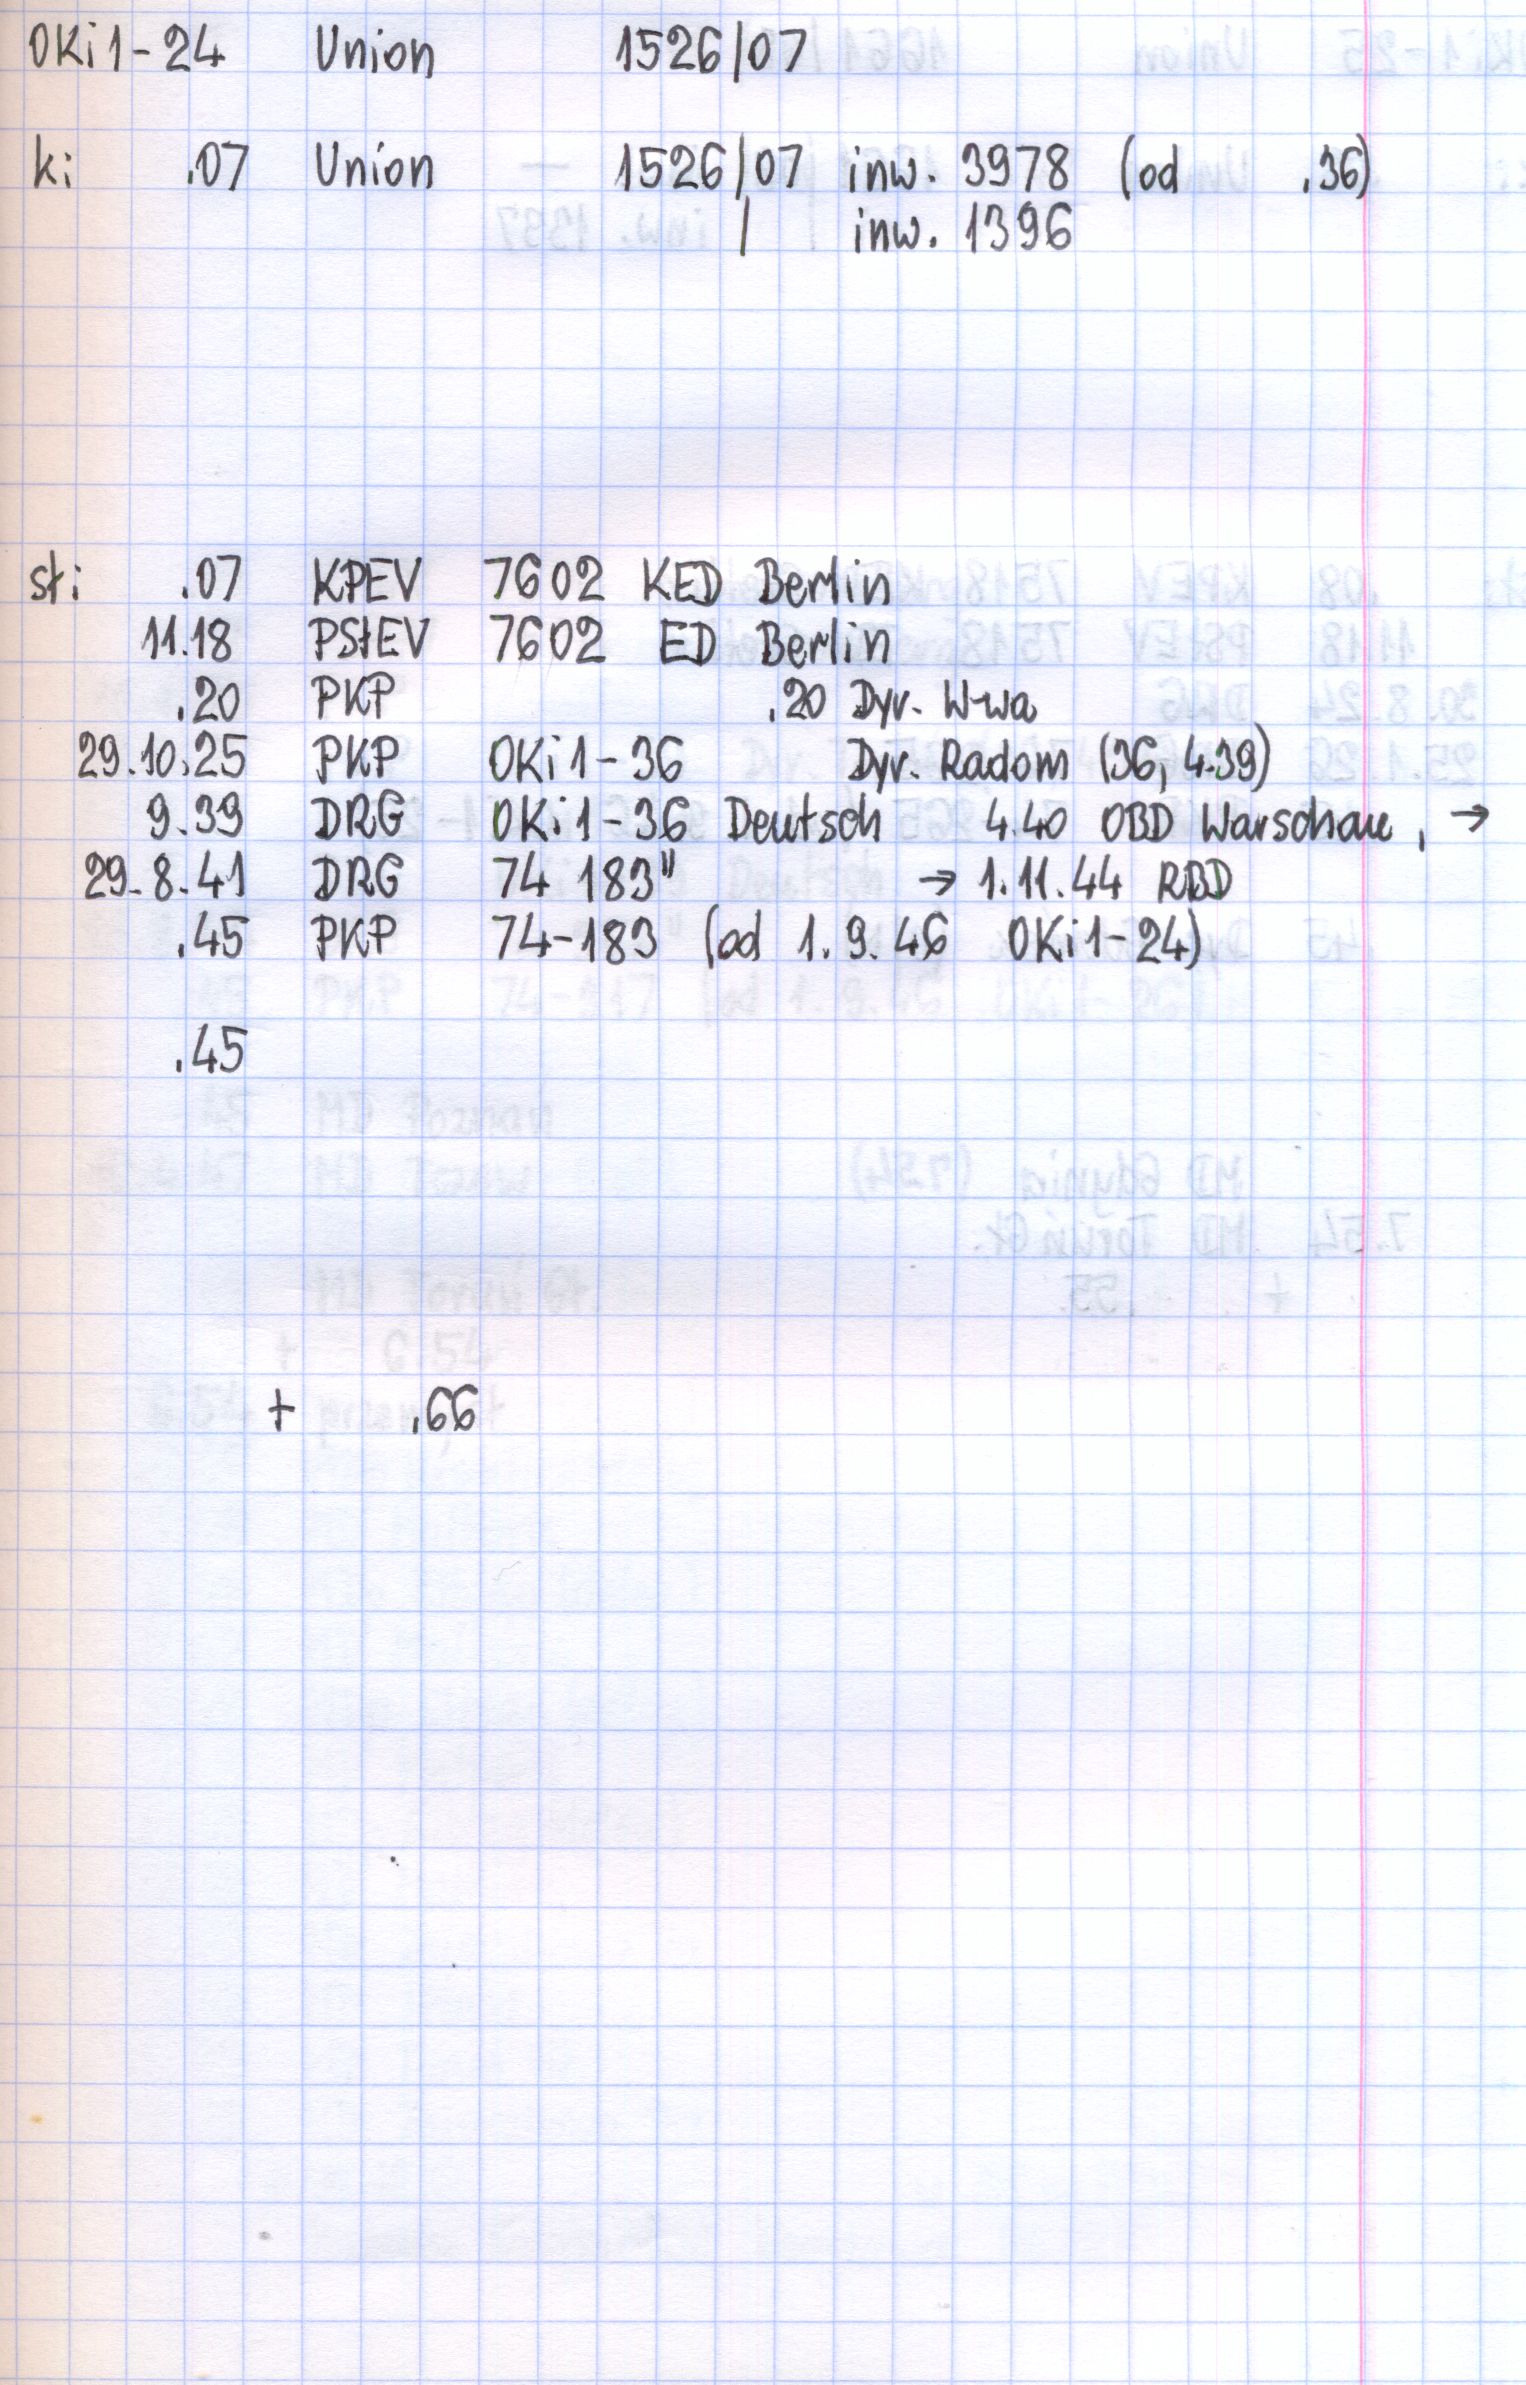 OKi1-24 Union 1526/07
ki .07 Union 1526/07 inw. 3978 (od .36)
/ inw. 1396
st: .07 KPEV 7602 KED Berlin
11.18 PStEV 7602 ED Berlin
.20 PKP .20 Dyr. W-wa
29.10.25 PKP OKi1-36 Dyr. Radom (36, 4.39)
9.39 DRG OKi1-36 Deutsch 4.40 OBD Warschau, →
29.8.41 DRG 74 183" → 1.11.44 RBD
.45 PKP 74-183 (od 1.9.46 OKi1-24)
.45
+ .66